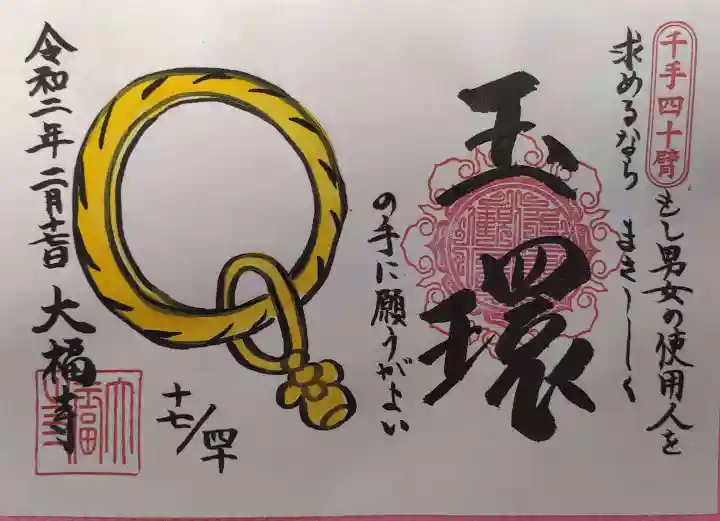 千手四十臂
もし男女の使用人を
求めるなら まさしく
玉環
の手に願うがよい
十七/四十
令和二年二月廿一日 大福寺
大福寺